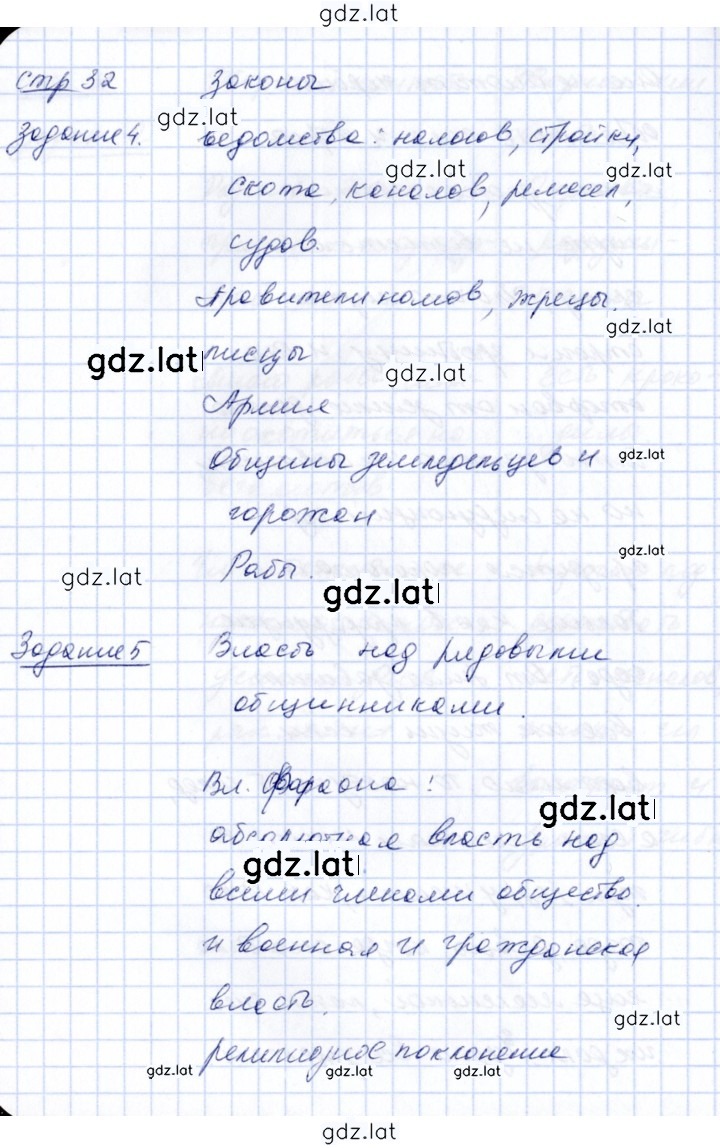 gdz.lat
стр 32 Законы
gdz.lat
Задание 4. ведомства: налогов, стройки,
gdz.lat gdz.lat
скота, каналов, ремесел,
судов.
Правители номов, жрецы.
gdz.lat
gdz.lat писцы
gdz.lat
Армия
Общины земледельцев и gdz.lat
горожан
gdz.lat
gdz.lat Рабы.
gdz.lat
Задание 5 Власть над рядовыми
общинниками.
Вл. Фараона!
gdz.lat
абсолютная власть над
gdz.lat
всеми членами общества.
и военная и гражданская
власть.
gdz.lat
религиозное поклонение
gdz.lat gdz.lat gdz.lat
gdz.lat